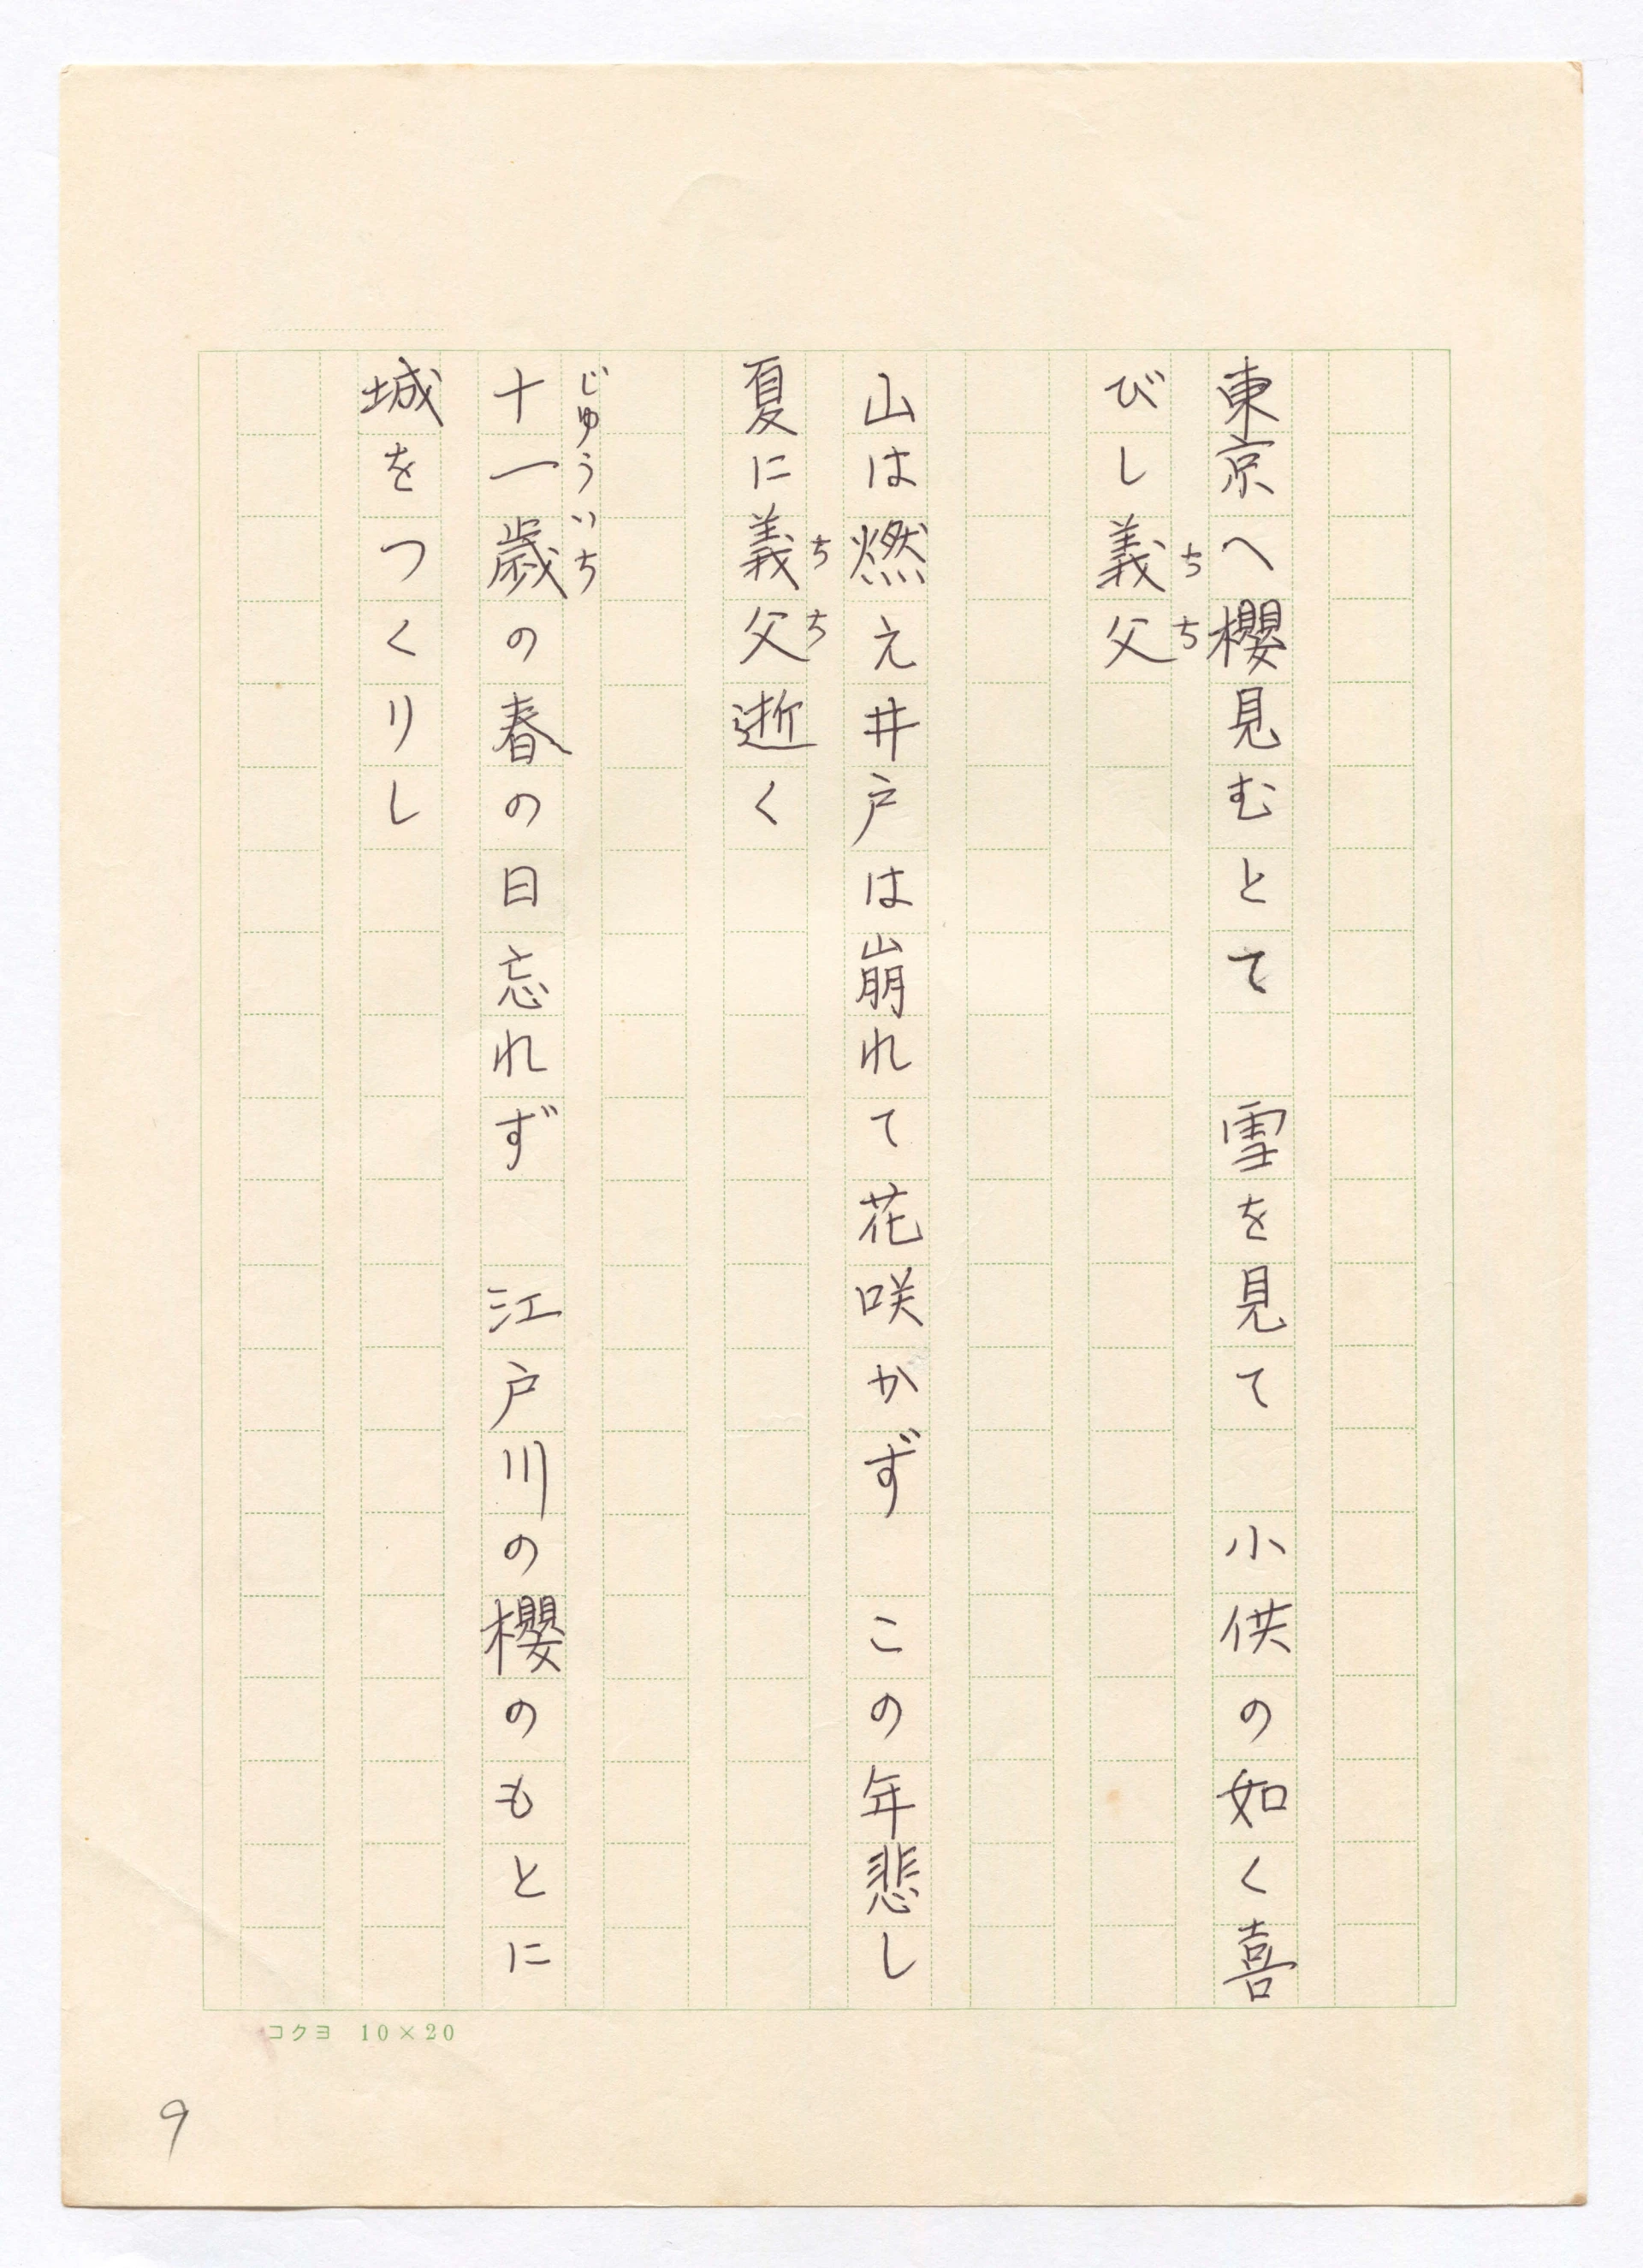 東京へ櫻見むとて　雪を見て　小供の如く喜
びし義父
ちち
山は燃え井戸は崩れて花咲かず　この年悲し
夏に義父逝く
ちち
十一歳の春の日忘れず　江戸川の櫻のもとに
じゅういち
城をつくりし
コクヨ 10×20
9